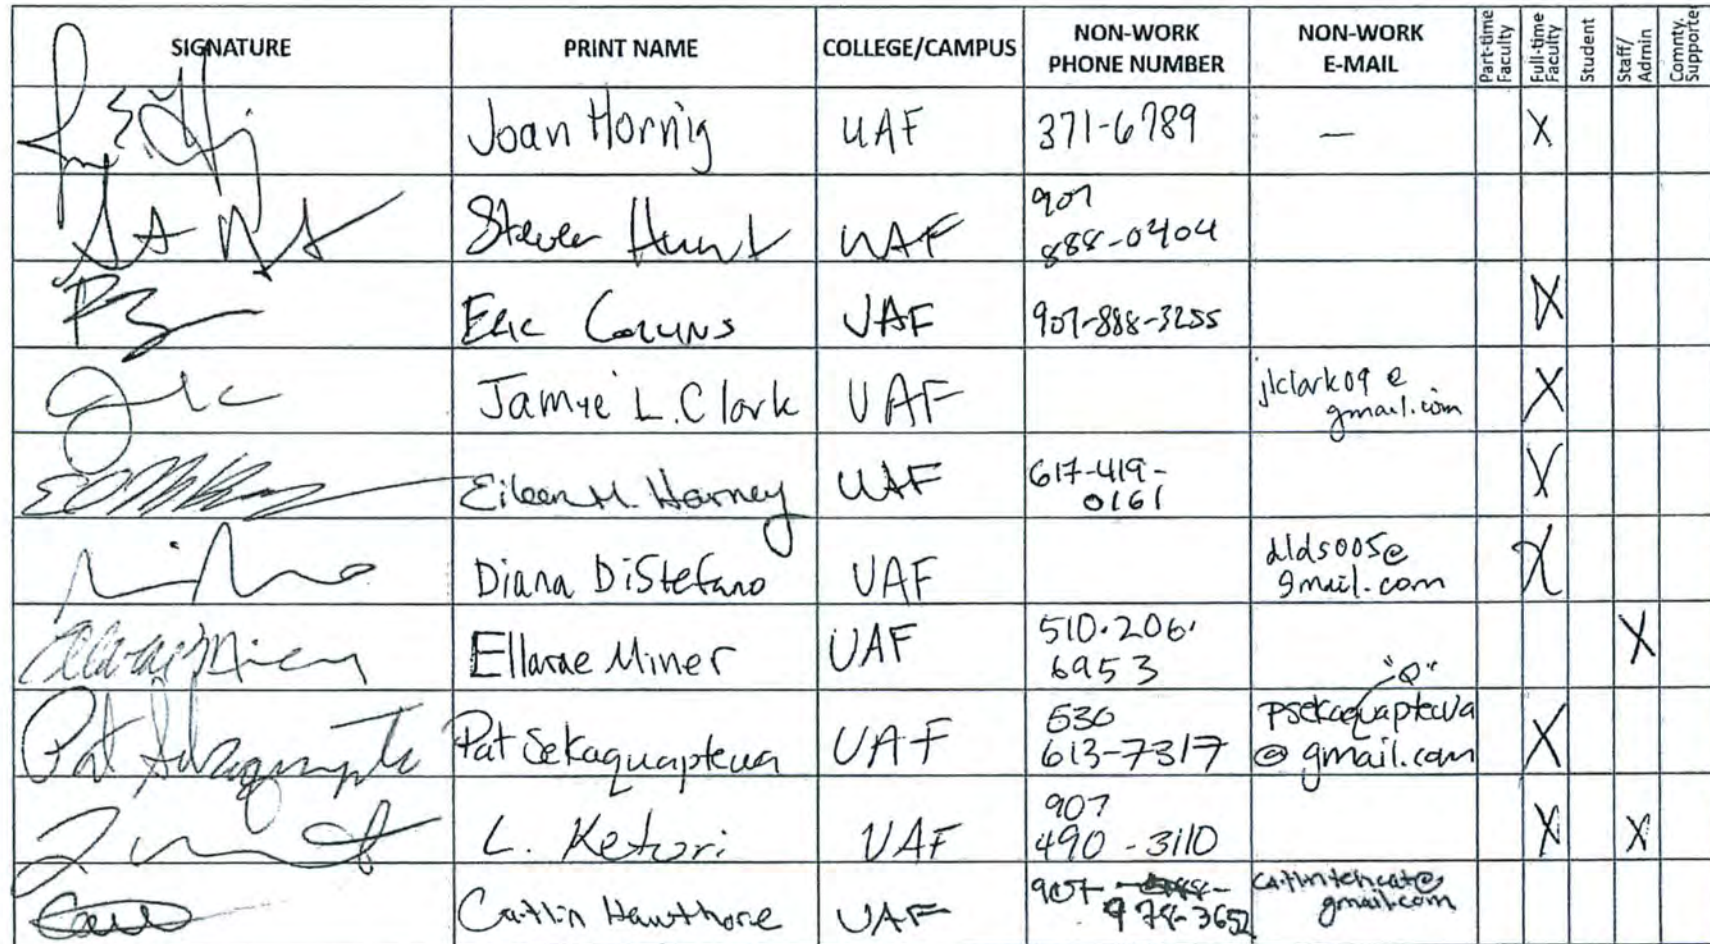 SIGNATURE PRINT NAME COLLEGE/CAMPUS NON-WORK PHONE NUMBER NON-WORK E-MAIL Part-time Faculty Full-time Faculty Student Staff/ Admin Comnty. Supporter
Joan Hornig UAF 371-6789 — X
Steven Hunt UAF 907 888-0404
Eric Collins UAF 907-888-3255 X
Jamie L. Clark UAF jlclark09@ gmail.com X
Eileen M. Harney UAF 617-419- 0161 X
Diana DiStefano UAF dlds005@ gmail.com X
Ellarae Miner UAF 510.206. 6953 X
"Q"
Pat Sekaquaptewa UAF 530 613-7317 psekaquaptewa @ gmail.com X
L. Keturi UAF 907 490-3110 X X
Caitlin Hawthorne UAF 907- 978-3652 gmail.com